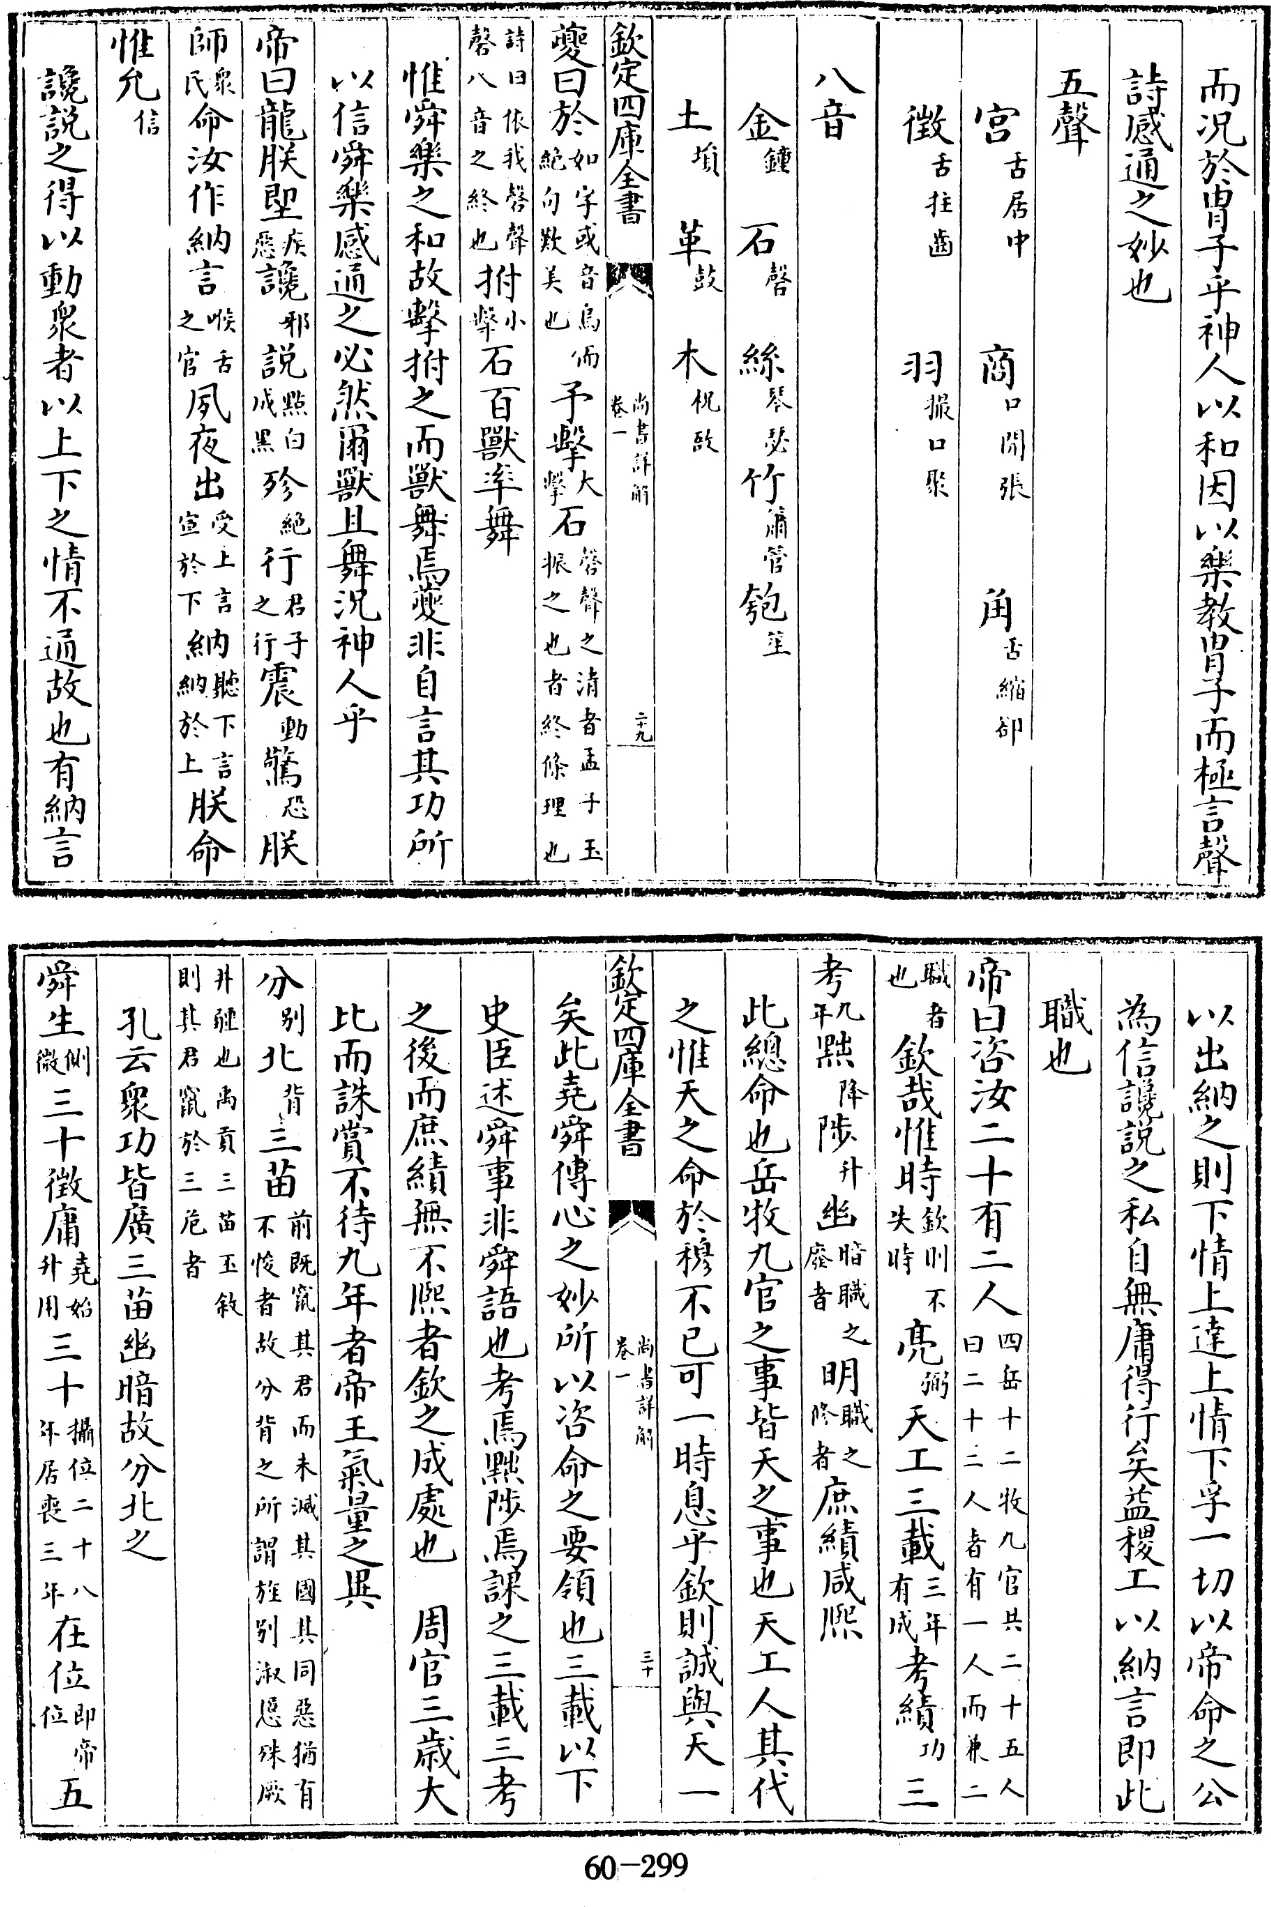 而況於冑子乎神人以和因以樂教冑子而極言聲
詩感通之妙也
五聲
宮舌居中 商口開張 角舌縮卻
徵舌拄齒 羽撮口聚
八音
金鐘 石磬 絲琴瑟 竹簫管 匏笙
土塤 革鼓 木柷敔
欽定四庫全書 尚書詳解 卷一 二十九
夔曰於如字或音烏而絶句歎美也予擊大擊石磬聲之清者孟子玉振之也者終條理也
詩曰依我磬聲磬八音之終也拊小擊石百獸率舞
惟舜樂之和故擊拊之而獸舞焉夔非自言其功所
以信舜樂感通之必然爾獸且舞況神人乎
帝曰龍朕堲疾惡讒邪說點白成黑殄絶行君子之行震動驚恐朕
師衆民命汝作納言喉舌之官夙夜出受上言宣於下納聽下言納於上朕命
惟允信
讒說之得以動衆者以上下之情不通故也有納言
以出納之則下情上達上情下孚一切以帝命之公
為信讒說之私自無庸得行矣益稷工以納言即此
職也
帝曰咨汝二十有二人四岳十二牧九官共二十五人曰二十三人者有一人而兼二
職者也欽哉惟時欽則不失時亮弼天工三載三年有成考績功三
考九年黜降陟升幽暗職之廢者明職之修者庶績咸熙
此總命也岳牧九官之事皆天之事也天工人其代
之惟天之命於穆不已可一時息乎欽則誠與天一
欽定四庫全書 尚書詳解 卷一 三十
矣此堯舜傳心之妙所以咨命之要領也三載以下
史臣述舜事非舜語也考焉黜陟焉課之三載三考
之後而庶績無不熙者欽之成處也 周官三歲大
比而誅賞不待九年者帝王氣量之異
分別北背三苗前既竄其君而未滅其國其同惡猶有不悛者故分背之所謂旌別淑慝殊厥
井疆也禹貢三苗丕敘則其君竄於三危者
孔云衆功皆廣三苗幽暗故分北之
舜生側微三十徵庸堯始升用三十攝位二十八年居喪三年在位即帝位五
60-299